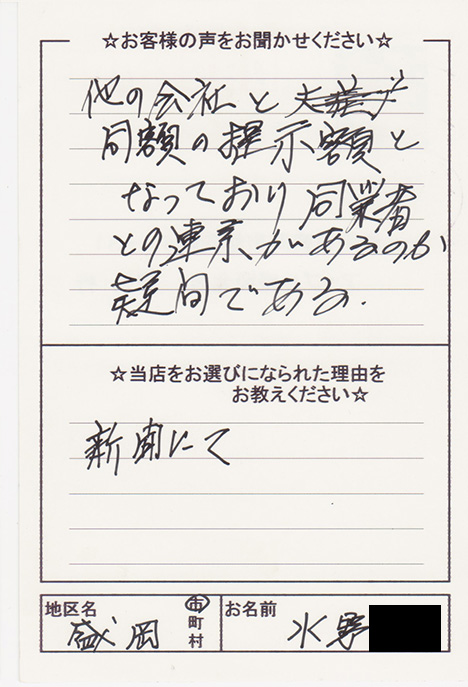 ☆お客様の声をお聞かせください☆
他の会社と
同額の提示額と
なっており同業者
との連系があるのか
疑問である.
☆当店をお選びになられた理由を
お教えください☆
新聞にて
地区名 盛岡 市町村 お名前 水野